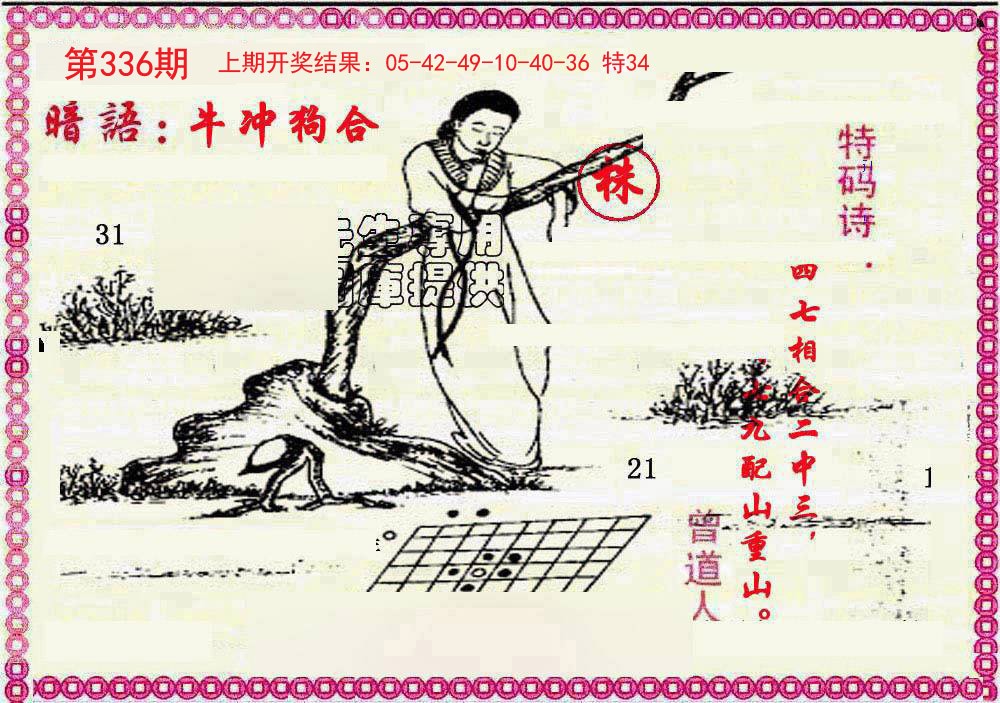 第336期 上期开奖结果：05-42-49-10-40-36 特34
暗語：牛冲狗合
株
特码诗：
31
四七相合二中三，
七九配山重山。
21
1
曾道人